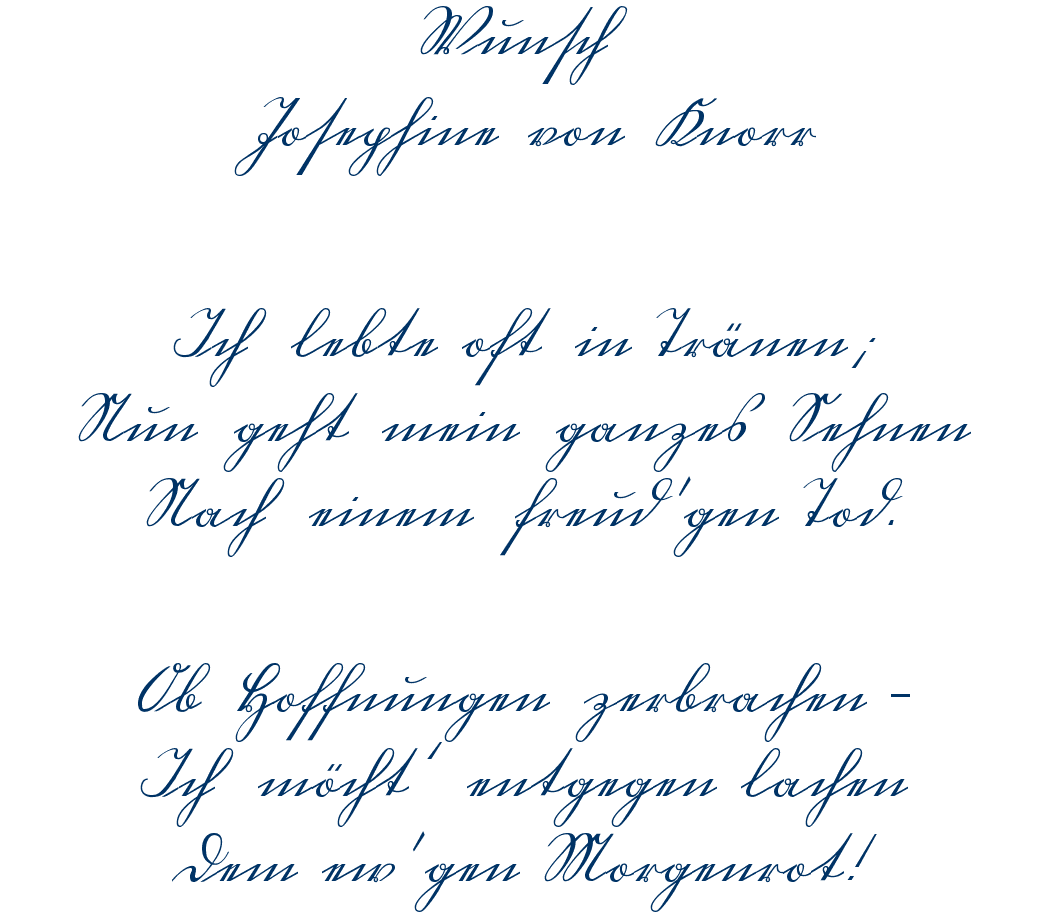 Wunsch
Josephine von Knorr
Ich lebte oft in Tränen;
Nun geht mein ganzes Sehnen
Nach einem freud'gen Tod.
Ob Hoffnungen zerbrachen –
Ich möcht' entgegen lachen
Dem ew'gen Morgenrot!